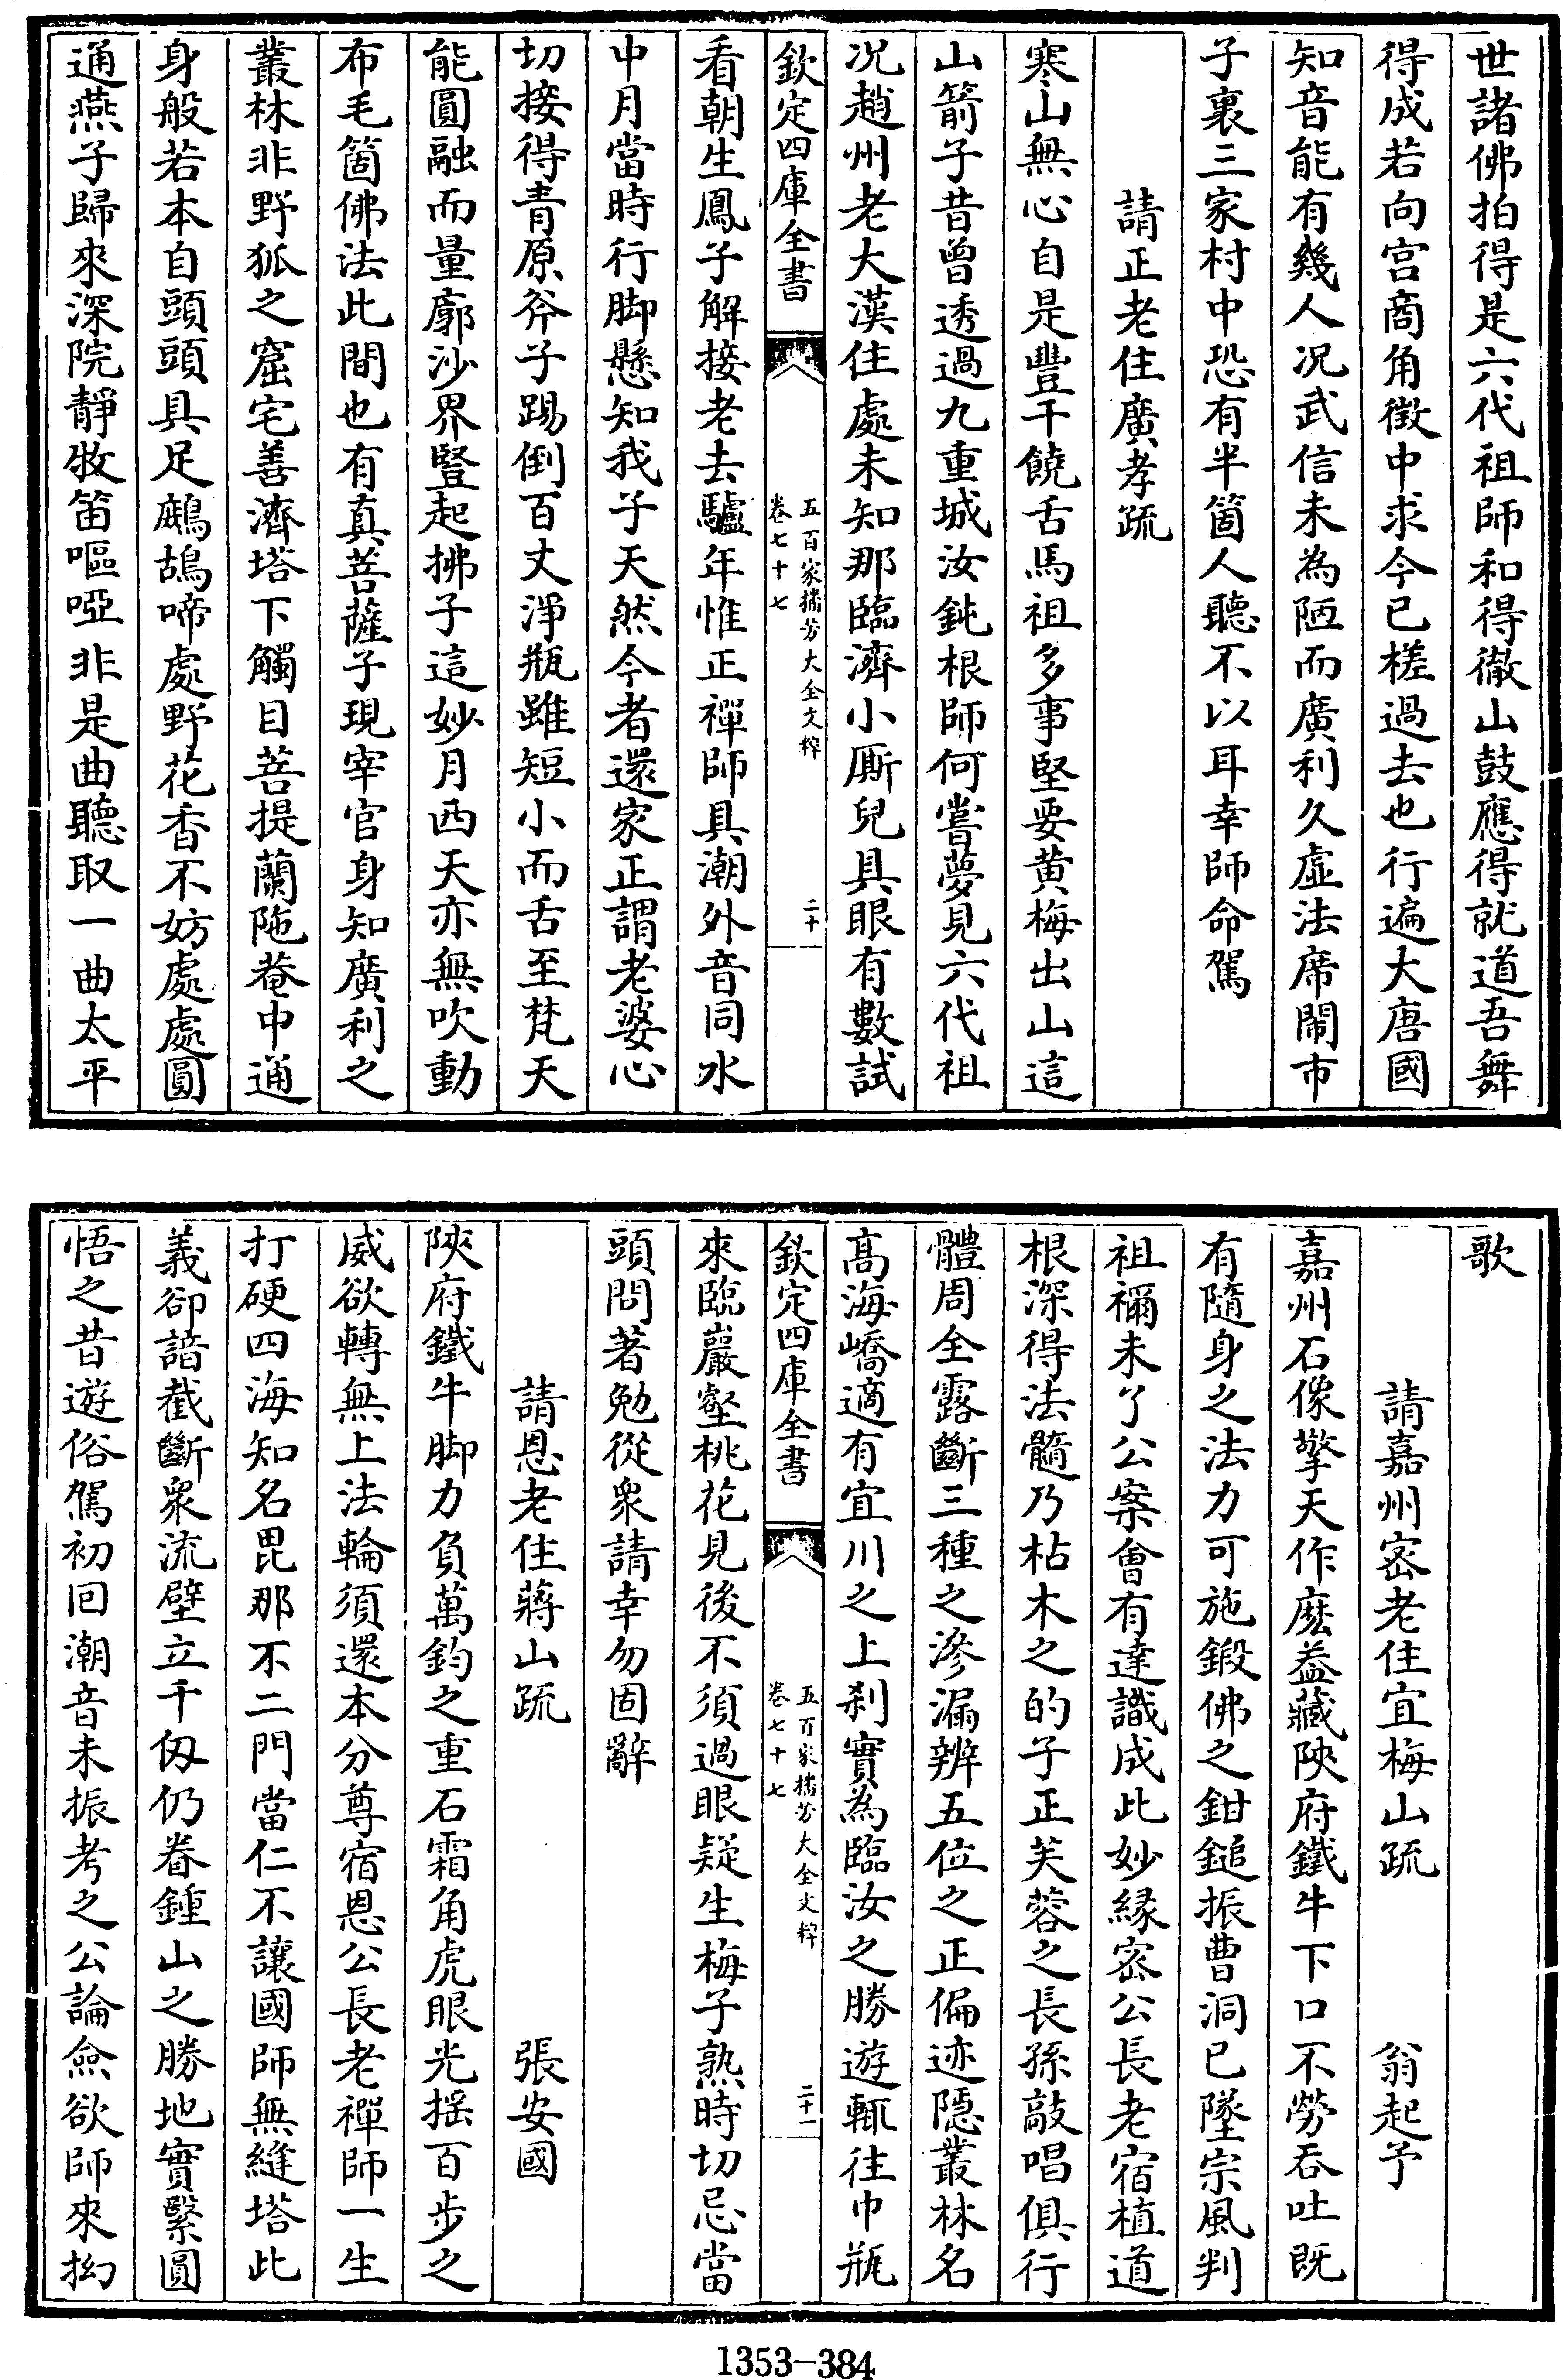 世諸佛拍得是六代祖師和得徹山鼓應得就道吾舞
得成若向宫商角徴中求今已槎過去也行遍大唐國
知音能有幾人况武信未為陋而廣利久虚法席鬧市
子裏三家村中恐有半箇人聽不以耳幸師命駕
請正老住廣孝疏
寒山無心自是豐干饒舌馬祖多事堅要黄梅出山這
山箭子昔曾透過九重城汝鈍根師何嘗夢見六代祖
况趙州老大漢住處未知那臨濟小厮兒具眼有數試
欽定四庫全書
五百家播芳大全文粹
卷七十七
二十
看朝生鳳子解接老去驢年惟正禪師具潮外音同水
中月當時行脚懸知我子天然今者還家正謂老婆心
切接得青原斧子踢倒百丈淨瓶雖短小而舌至梵天
能圓融而量廓沙界豎起拂子這妙月西天亦無吹動
布毛箇佛法此間也有真菩薩子現宰官身知廣利之
叢林非野狐之窟宅善濟塔下觸目菩提蘭陁菴中通
身般若本自頭頭具足鷓鴣啼處野花香不妨處處圓
通燕子歸來深院靜牧笛嘔啞非是曲聽取一曲太平
歌
請嘉州宻老住宜梅山疏　翁起予
嘉州石像擎天作麽葢藏陜府鐵牛下口不勞吞吐既
有隨身之法力可施鍛佛之鉗鎚振曹洞已墜宗風判
祖禰未了公案會有達識成此妙縁宻公長老宿植道
根深得法髓乃枯木之的子正芙蓉之長孫敲唱俱行
體周全露斷三種之滲漏辨五位之正偏迹隱叢林名
髙海嶠適有宜川之上刹實為臨汝之勝遊輒往巾瓶
欽定四庫全書
五百家播芳大全文粹
卷七十七
二十一
來臨巖壑桃花見後不須過眼疑生梅子熟時切忌當
頭問著勉從衆請幸勿固辭
請恩老住蔣山疏　張安國
陜府鐵牛脚力負萬鈞之重石霜角虎眼光揺百步之
威欲轉無上法輪須還本分尊宿恩公長老禪師一生
打硬四海知名毘那不二門當仁不讓國師無縫塔此
義卻諳截斷衆流壁立千仭仍眷鍾山之勝地實繄圓
悟之昔遊俗駕初囘潮音未振考之公論僉欲師來拗
1353-384